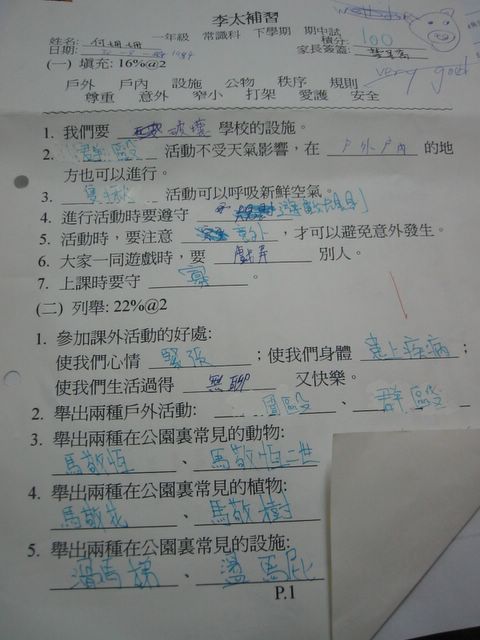 李太補習
一年級 常識科 下學期 期中試
姓名: 何姍姍 積分: 100
日期: 家長簽蓋:
very good
(一) 填充: 16%@2
戶外 戶內 設施 公物 秩序 規則
尊重 意外 窄小 打架 愛護 安全
1. 我們要 破壞 學校的設施。
2. 群毆 活動不受天氣影響，在 戶外戶內 的地
方也可以進行。
3. 活動可以呼吸新鮮空氣。
4. 進行活動時要遵守 遊戲規則
5. 活動時，要注意 意外 ，才可以避免意外發生。
6. 大家一同遊戲時，要 戲弄 別人。
7. 上課時要守 寡 。
(二) 列舉: 22%@2
1. 參加課外活動的好處:
使我們心情 緊張 ；使我們身體 患上疾病 ；
使我們生活過得 無聊 又快樂。
2. 舉出兩種戶外活動: 圍毆 、 群毆
3. 舉出兩種在公園裏常見的動物:
馬敬恆 、 馬敬恆二世
4. 舉出兩種在公園裏常見的植物:
馬敬花 、 馬敬樹
5. 舉出兩種在公園裏常見的設施:
滑馬梯 、 盪馬屁
P.1